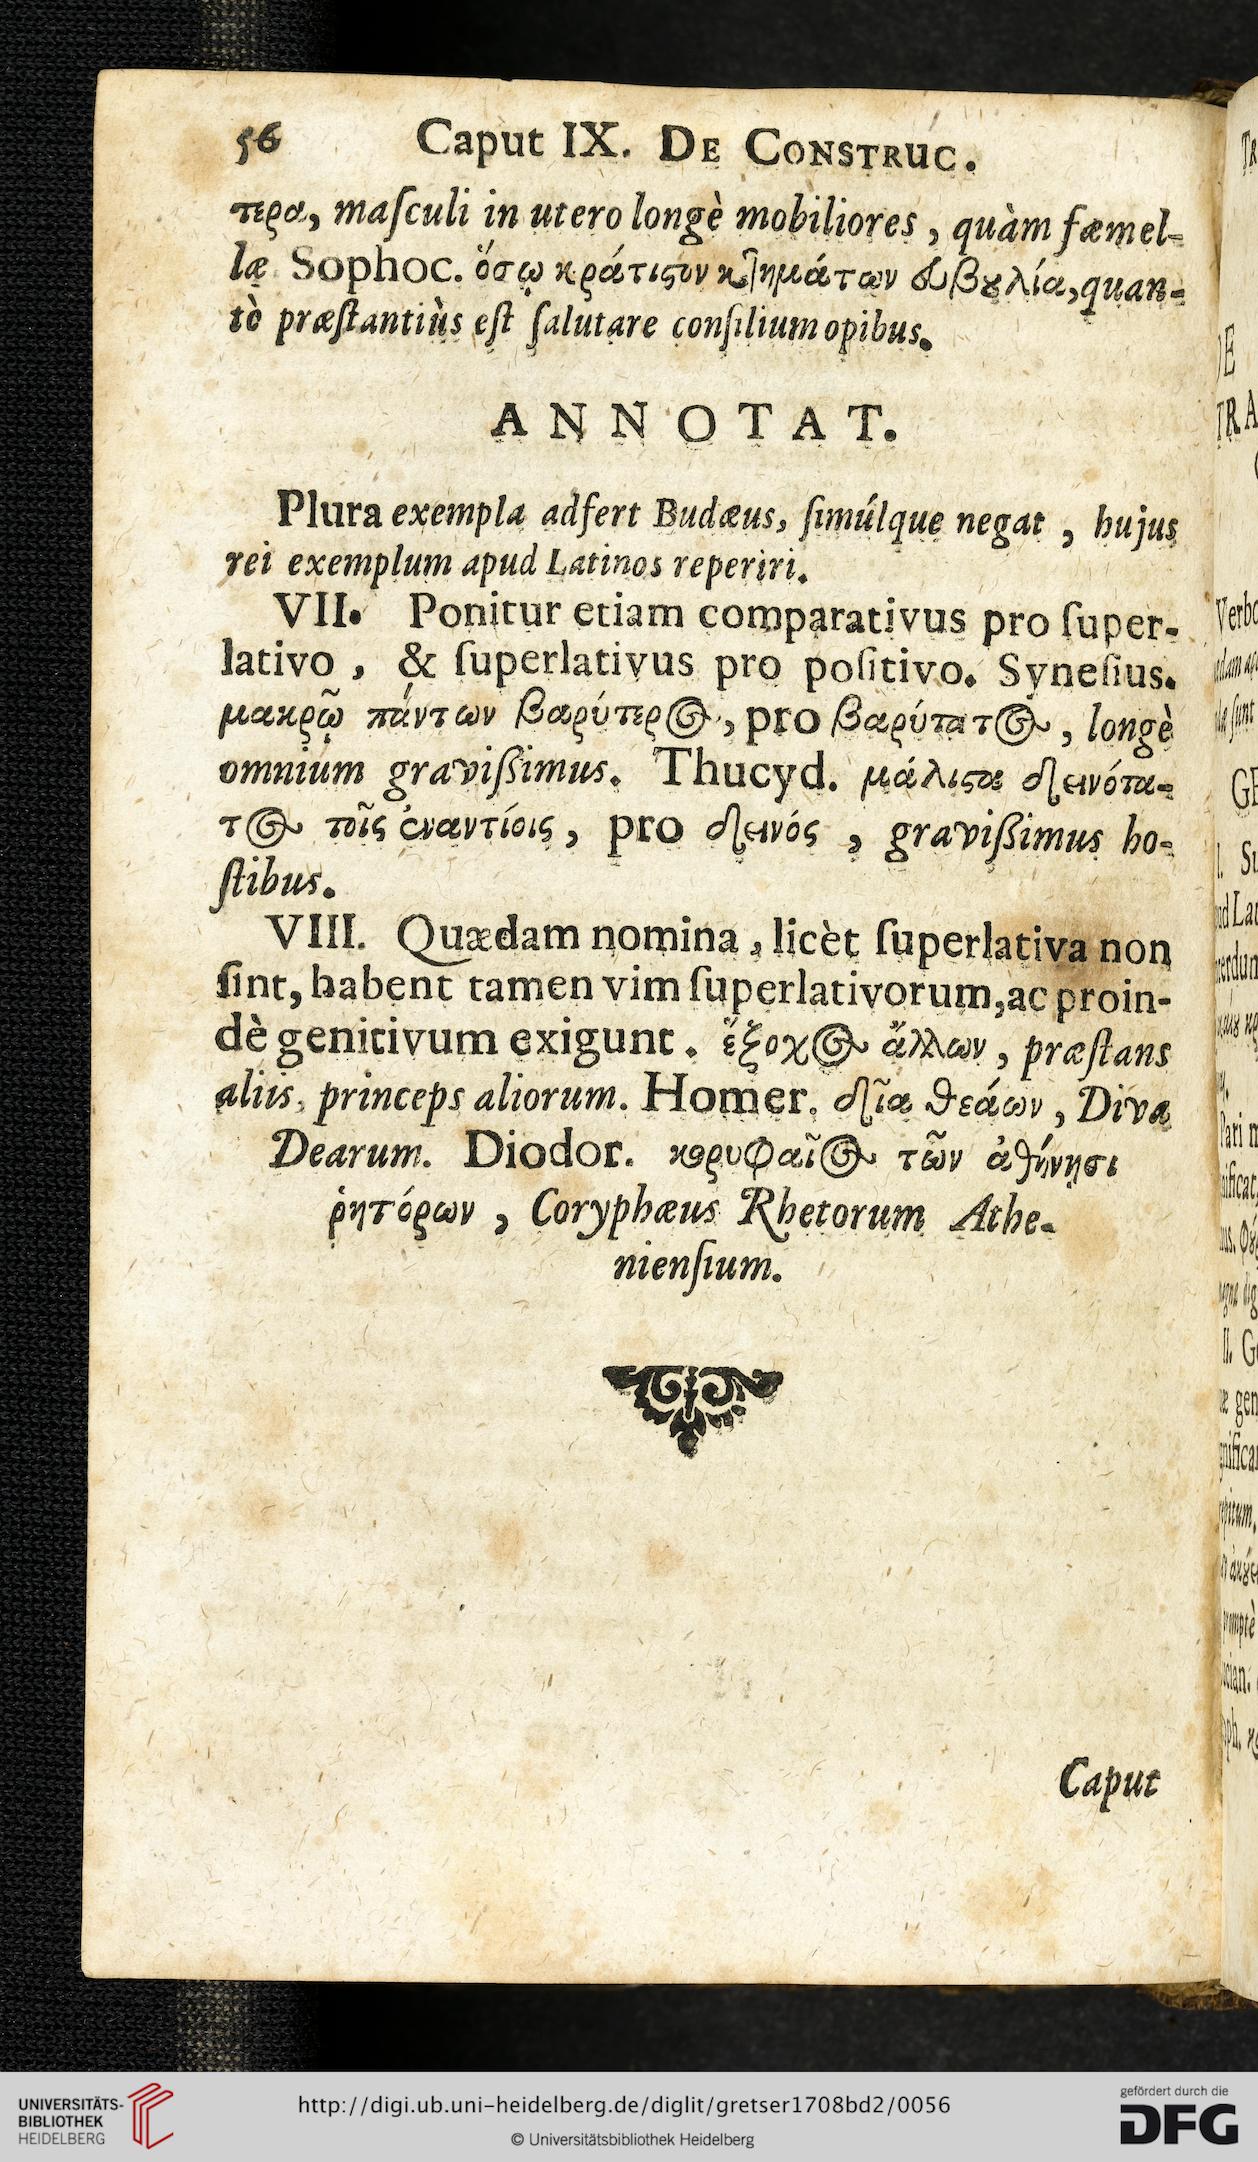 56 Caput IX. DE CONSTRUC.
τερα, maſculi in utero longè mobiliores, quàm fæmel-
læ. Sophoc. ὅσῳ κράτιςον κτημάτων εὐβȣλία, quan-
tò præſtantiùs eſt ſalutare conſilium opibus.
ANNOTAT.
Plura exempla adfert Budæus, ſimúlque negat, hujus
rei exemplum apud Latinos reperiri.
VII. Ponitur etiam comparativus pro ſuper-
lativo, & ſuperlativus pro poſitivo. Syneſius.
μακρῷ πάντων βαρύτερος, pro βαρύτατος, longè
omnium graviſſimus. Thucyd. μάλιςα δεινότα-
τος τοῖς ἐναντίοις, pro δεινός, graviſſimus ho-
ſtibus.
VIII. Quædam nomina, licèt ſuperlativa non
ſint, habent tamen vim ſuperlativorum, ac proin-
dè genitivum exigunt. ἔξοχος ἄλλων, præſtans
aliis, princeps aliorum. Homer. δῖα θεάων, Diva
Dearum. Diodor. κορυφαῖος τῶν ἀθήνησι
ῥητόρων, Coryphæus Rhetorum Athe-
nienſium.
Caput
UNIVERSITÄTS-
BIBLIOTHEK
HEIDELBERG
http://digi.ub.uni-heidelberg.de/diglit/gretser1708bd2/0056
© Universitätsbibliothek Heidelberg
gefördert durch die
DFG